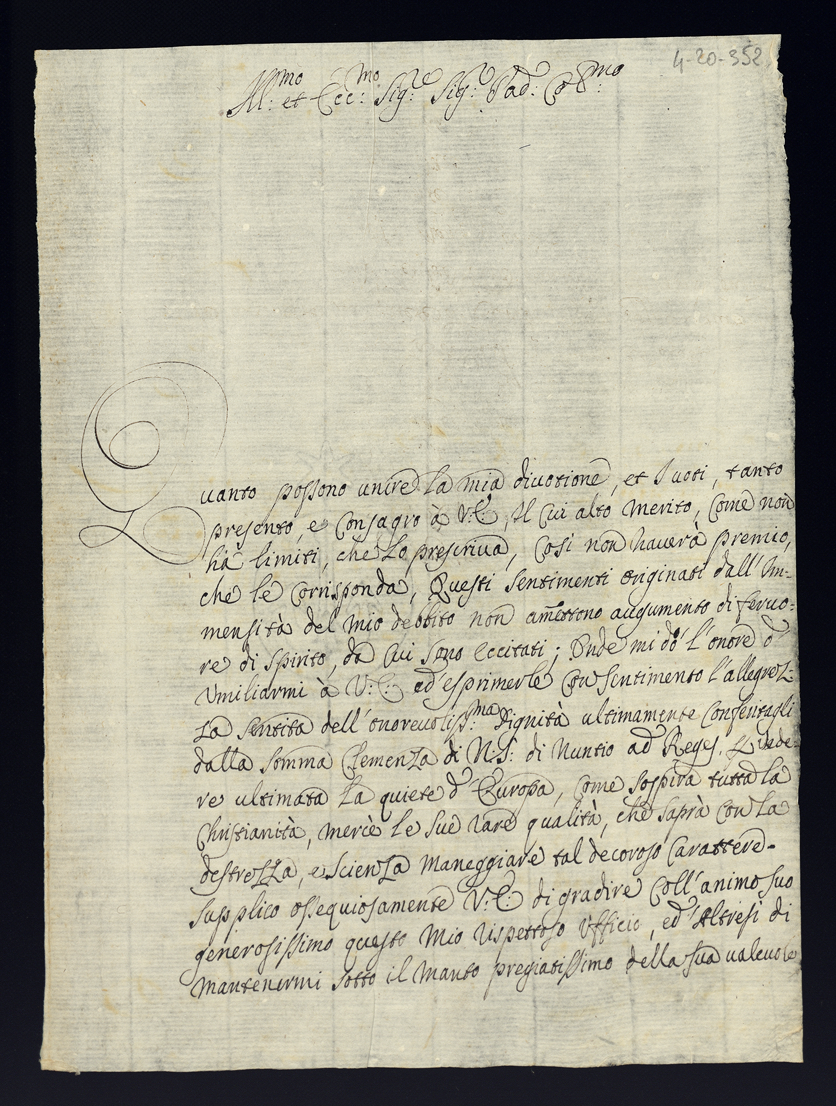 4-20-352
Ill:mo et Ecc:mo Sig:re Sig:re Pad: Col:mo
Quanto possono unire la mia divotione, et I voti, tanto
presento, e Consagro à V:E: Il Cui alto Merito, Come non
hà limiti, che Lo prescriva, Così non haverà premio,
che le Corrisponda, Questi sentimenti originati dall'Im-
mensità del Mio debbito non amettono augumento di fervo-
re di Spirito, da Cui sono Eccitati; Onde mi dò l'onore d'
Umiliarmi à V:E: ed'esprimerle Con Sentimento l'allegrez-
za Sentita dell'onorevoliss:ma Dignità ultimamente Conferitagli
dalla somma Clemenza di N:S: di Nuntio ad Reges,
re ultimata La quiete d'Europa, Come sospira tutta la
Christianità, mercè le Sue rare qualità, che saprà Con La
destrezza, e Scienza Maneggiare tal decoroso Carattere.
Supplico ossequiosamente V:E: di gradire Coll'animo suo
generosissimo questo Mio rispettoso Ufficio, ed'Altresì di
Mantenermi sotto il Manto pregiatissimo della sua valevole